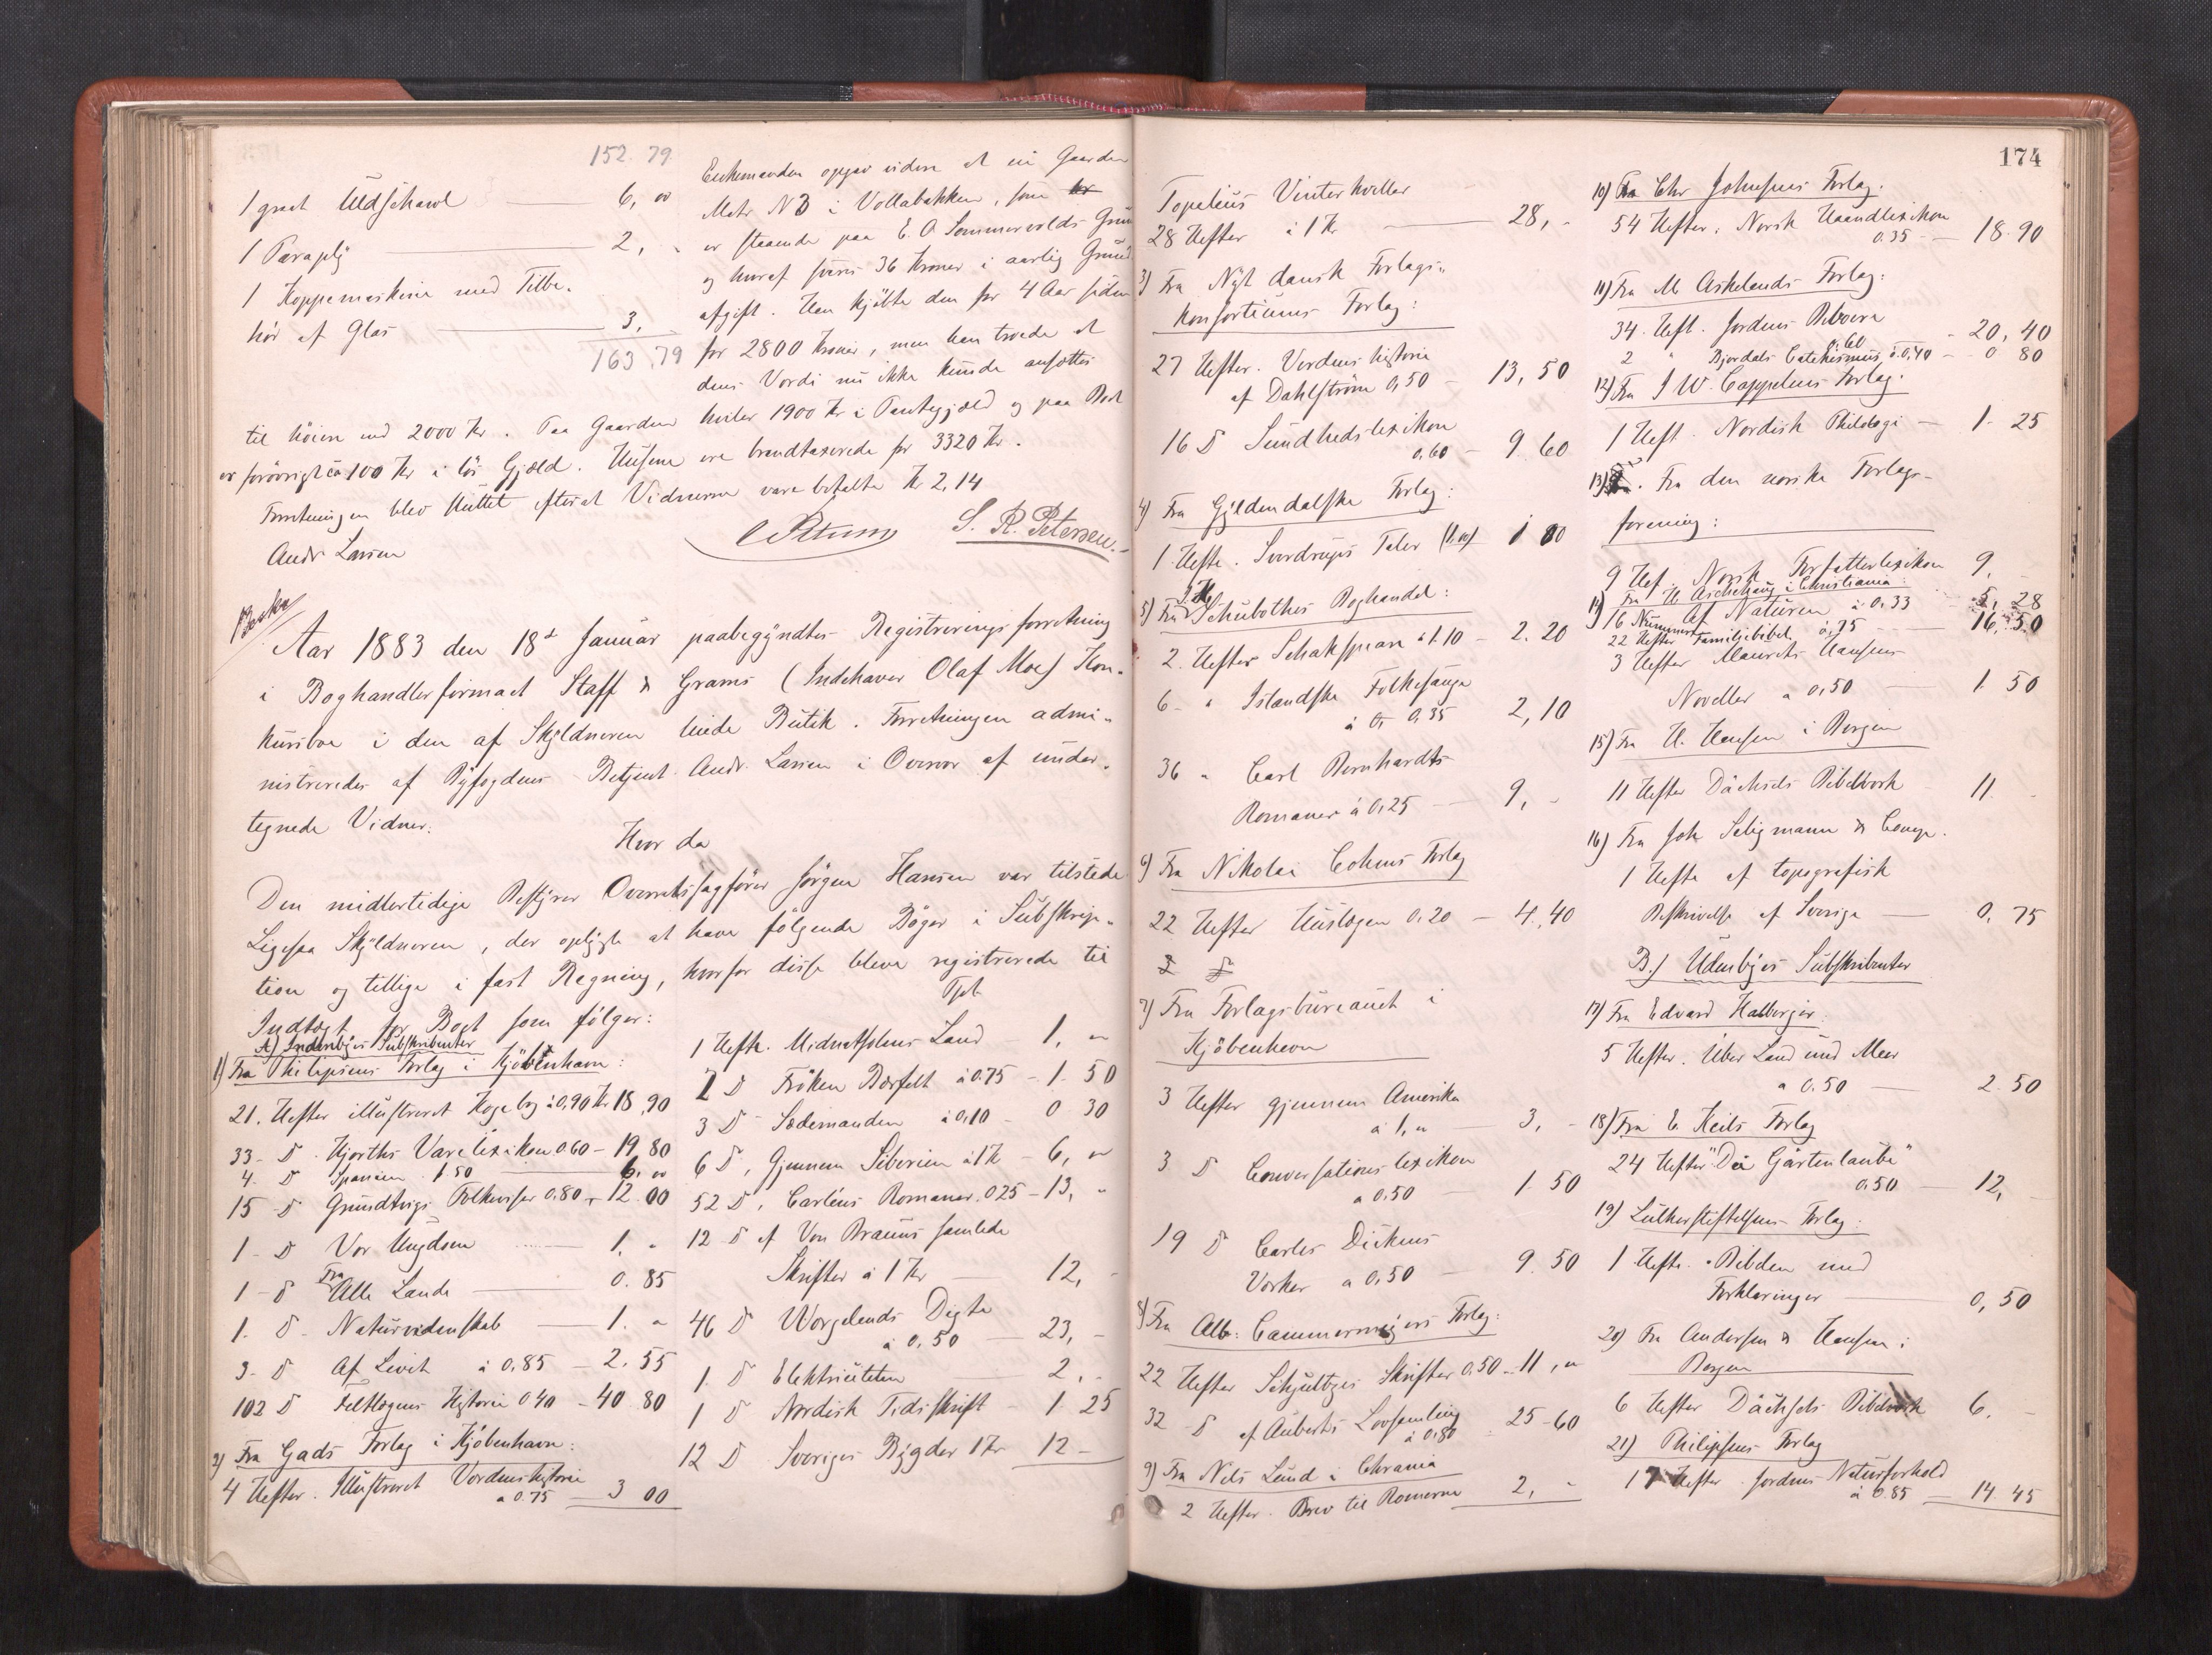 152.79
1 graat Uldschavl 6,00
1 Paraply 2, "
1 Koppemaskine med Tilbe-
hör af Glas 3,
163,79
Enkemanden opgav videre at eie Gaarden
Matr No 3 i Vollabakken, som
er staaende paa E. A Sommervolds Grun
og hvoraf svares 36 Kroner i aarlig Grund
afgift. Han kjöbte den for 4 Aar siden
for 2800 Kroner, men han troede at
dens Værdi nu ikke kunde ansættes
til höiere end 2000 Kr. Paa Gaarden hviler 1900 Kr i Pantegjæld og paa Boet
er forövrigt ca 100 Kr i lös Gjæld. Husene ere brandtaxerede for 3320 Kr.
Forretningen blev sluttet efterat Vidnerne vare betalte Kr 2,14
Andr Larsen S. R. Petersen.
Aar 1883 den 18de Januar paabegyndtes Registreringsforretning
i Boghandlerfirmaet Staff & Grams (Indehaver Olaf Moe) Kon-
kursboe i den af Skyldneren leiede Butik. Forretningen admi-
nistreredes af Byfogdens Betjent Andr. Larsen i Overvær af under-
tegnede Vidner.
Hvor da
Den midlertidige Bestyrer Overretssagförer Jörgen Hansen var tilstede
Ligesaa Skyldneren, der oplyste at have fölgende Böger i Subskrip-
tion og tillige i fast Regning, hvorfor disse bleve registrerede til
Indtægt for Boet som fölger:
A) Indenbyes Subskribenter
1) Fra Philipsens Forlag i Kjöbenhavn:
21. Hefter illustreret Kogebog à 0,90 Kr 18,90
33- D. Hjorths Varelexikon 0.60 - 19,80
4. D Spanien 1.50 6,00
15 - D Grundtvigs Folkeviser 0.80 - 12.00
1 - D Vor Ungdom 1. "
1 - D Fra Alle Lande 0.85
1. D. Naturvidenskab 1. "
3- D Af Livet à 0,85 - 2.55
102 D Felttogens Historie 0 40 - 40.80
2) Fra Gads Forlag i Kjöbenhavn:
4 Hefter. Illustreret Verdenshistorie
a 0.75 3 00
1 Hefte. Midnatsolens Land 1, "
2 D Fröken Bærfelt à 0.75 - 1. 50
3 D Sædemanden à 0,10 - 0 30
6 D, Gjennem Siberien à 1 Kr - 6, "
52 D, Carlèns Romaner. 0 25 - 13, "
12 D af Von Brauns samlede
Skrifter à 1 Kr 12, -
46 D Wergelands Digte
à 0.50 23, -
1. D Elektriciteten 2, -
1 D Nordisk Tidsskrift - 1 25
12 D Sveriges Bygder 1 Kr 12 -
174
Topelius Vinterkveller
28 Hefter à 1 Kr 28, -
3) Fra Nyt dansk Forlags-
konsortiums Forlag:
27 Hefter. Verdenshistorie
af Dahlström 0,50 - 13,50
16 D Sundhedslexikon
0,60 - 9.60
4) Fra Gyldendalske Forlag:
1. Hefte. Sverdrups Taler (1,00) 1 00
5) Fra Schubothes Boghandel:
2. Hefter Schakspeare à 1.10 - 2.20
6 - " Islandske Folkesange
à 0,35 2,10
36 " Carl Bernhardts
Romaner à 0,25 9, -
6) Fra Nikolai Cohens Forlag
22 Hefter Huslægen 0.20 - 4,40
7) Fra Forlagsbureauet i
Kjöbenhavn
3 Hefter gjennem Amerika
à 1, " 3, -
3 D Conversationslexikon
a 0.50 1.50
19 D Carles Dickens
Værker a 0,50 9.50
8) Fra Alb: Cammermeijers Forlag:
22 Hefter Schultzes Skrifter 0.50 - 11, "
32 D af Auberts Lovsamling
à 0.80 25-60
9) Fra Nils Lund i Chrania
2 Hefter. Brev til Romerne 2, -
10) Fra Chr Johnsens Forlag.
54 Hefter. Norsk Haandlexikon
0.35 18.90
11) Fra M Askelands Forlag:
34. Heft. Jordens Beboere
0.60 - 20,40
2 " Bjørdals Catekismus à 0,40 - 0 80
12) Fra J W. Cappelens Forlag.
1 Heft. Nordisk Philologi - 1. 25
13). Fra den norske Forlags-
forening:
9 Hef. Norsk Forfatterlexikon 9,
14) Fra H Aschehoug i Christiania:
16 Nummere af Naturen à 0.33 5,28
22 Hefter Familiebibel à 75 16,50
3 Hefter Maurits Hansens
Noveller a 0,50 1 50
15) Fra H. Hansen i Bergen
11 Hefter Dächsels Bibelværk 11 -
16) Fra Joh Seligmann & Comp.
1 Hefte af topografisk
Beskrivelse af Sverige 0. 75
B.) Udenbyes Subskribenter
17) Fra Edvard Halberger.
5 Hefter. Über Land und Meer
a 0.50 2.50
18) Fra E. Keils Forlag
24 Hefter "Die Gärtenlaube"
0.50 12,
19) Lutherstiftelsens Forlag:
1 Hefte. Bibelen med
Forklaringer 0,50
20) Fra Andersen & Hansen i
Bergen
6 Hefter Dächsels Bibelværk 6. -
21) Philipsens Forlag
17 Hefter Jordens Naturforhold
à 0.85 14.45